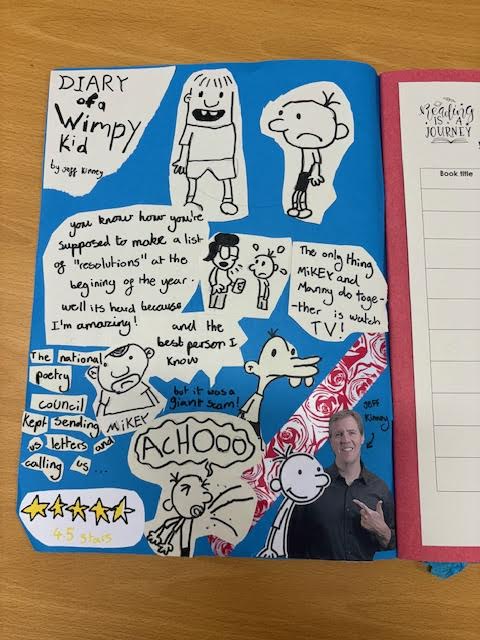 DIARY
of a
Wimpy
Kid
by Jeff Kinney
Reading
IS A
JOURNEY
Book title
you know how you're
supposed to make a list
of "resolutions" at the
begining of the year.
well its hard because
I'm amazing!
and the
best person I
know
The only thing
MiKEY and
Manny do toge-
-ther is watch
TV!
The national
poetry
council
Kept sending
us letters and
calling us ...
MiKEY
but it was a
giant scam!
ACHOOO
Jeff
Kinney
4.5 stars